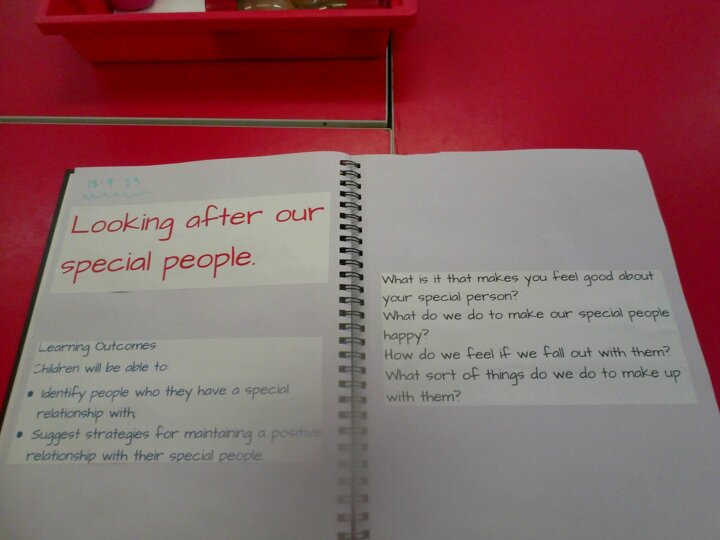 Looking after our
special people.
Learning Outcomes
Children will be able to:
• Identify people who they have a special
relationship with;
• Suggest strategies for maintaining a positive
relationship with their special people.
What is it that makes you feel good about
your special person?
What do we do to make our special people
happy?
How do we feel if we fall out with them?
What sort of things do we do to make up
with them?